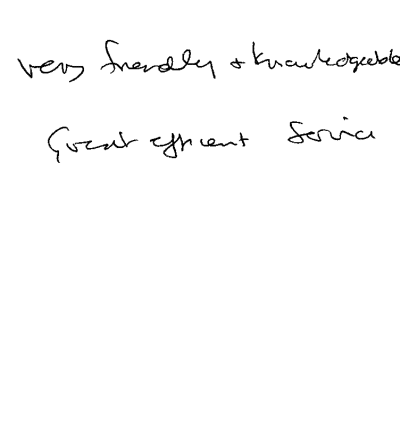 very friendly + knowledgeable
Great efficient service